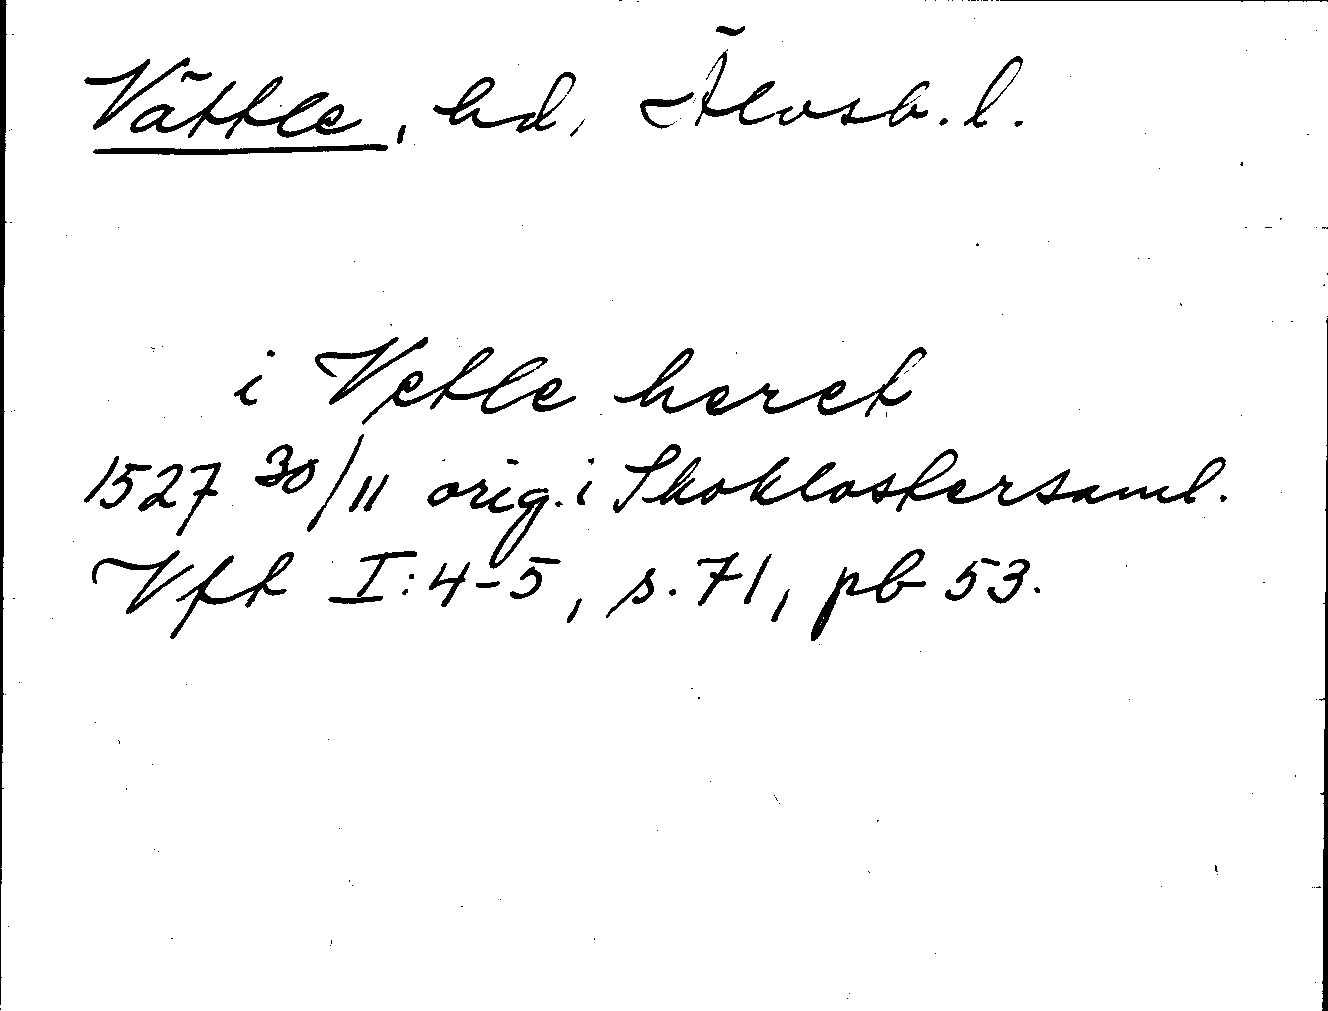 Vättle, hd, Älvsb. l.
i Vetle heret
1527 30/11 orig. i Skoklostersaml.
Vft I:4-5, s. 71, pb 53.